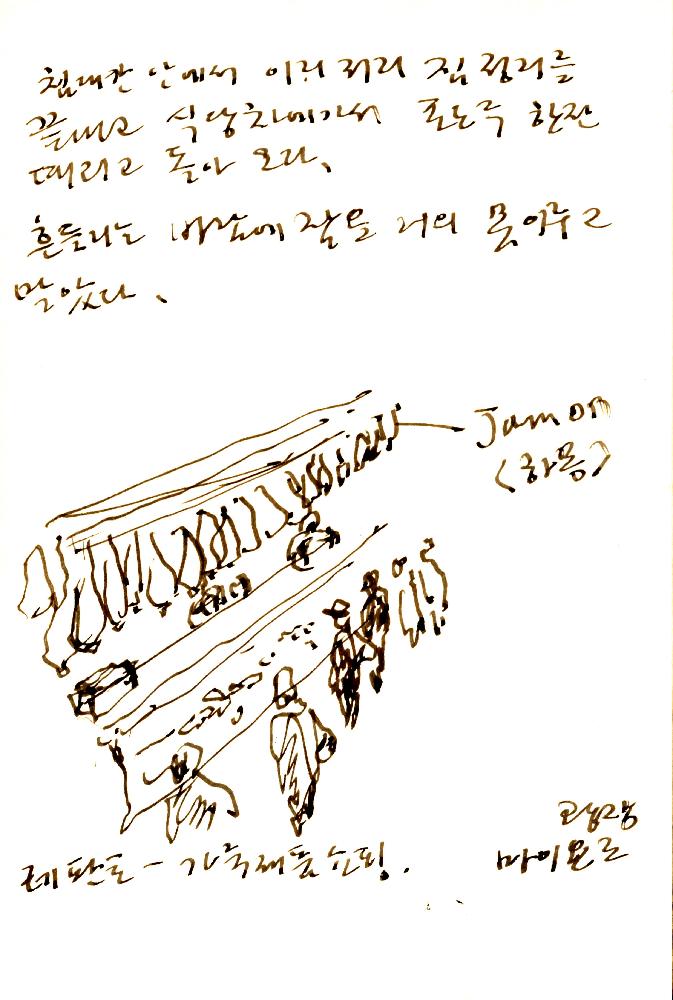 침대칸 안에서 이리저리 짐정리를
끝내고 식당차에가서 포도주 한잔
때리고 돌아 오다.
흔들리는 바람에 잠을 거의 못이루고
말았다.
Jamon
(하몽)
레판토 - 가죽제품쇼핑.
마이욜로